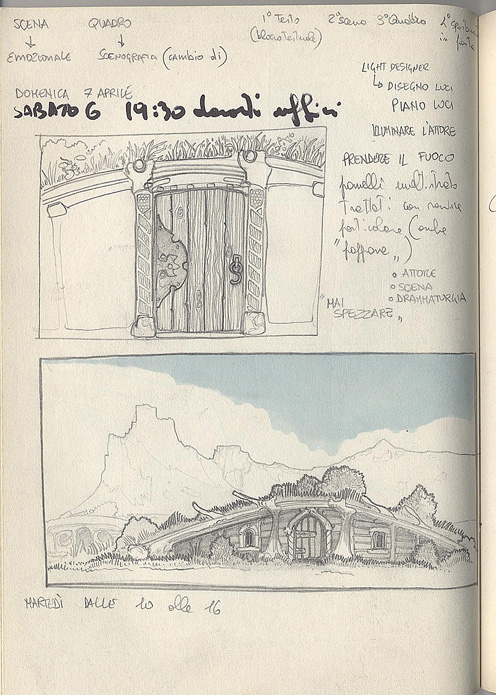 SCENA QUADRO
1° Testo 2° scena 3° Quadro
EMOZIONALE SCENOGRAFIA (cambio di)
LIGHT DESIGNER
DISEGNO LUCI
PIANO LUCI
DOMENICA 7 APRILE
SABATO 6 19:30 davanti uffizi
ILLUMINARE L'ATTORE
PRENDERE IL FUOCO
pannelli multistrato
trattati con
particolare (anche
ATTORE
SCENA
DRAMMATURGIA
"MAI
SPEZZARE"
MARTEDÌ DALLE 10 alle 16